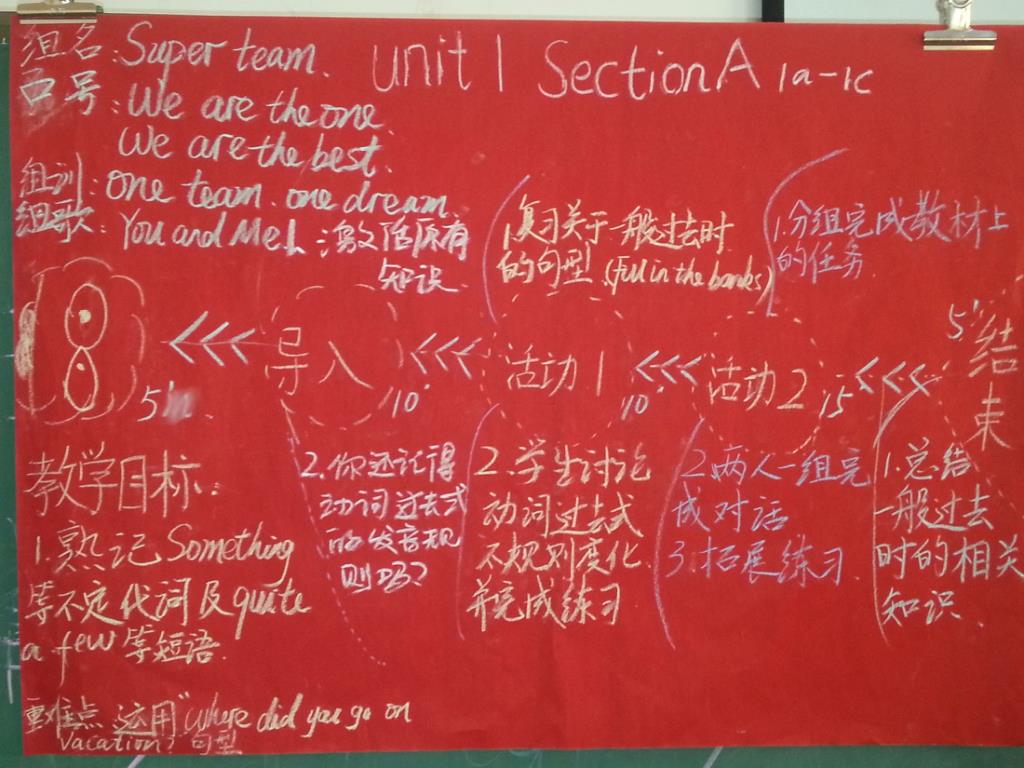 组名:Super team.
unit 1 Section A 1a-1c
口号:We are the one.
We are the best.
组训:one team. one dream
组歌:You and Me
1:激活原有
知识.
1.复习关于一般过去时
的句型.(Fill in the banks)
1.分组完成教材上
的任务
5'
导入
10'
活动1
10'
活动2
15'
5'
结束
教学目标:
1.熟记Something
等不定代词及quite
a few等短语.
2.你还记得
动词过去式
的发音规
则吗?
2.学生讨论
动词过去式
不规则变化
并完成练习
2.两人一组完
成对话
3.拓展练习.
1.总结
一般过去
时的相关
知识.
重难点 运用"Where did you go on
vacation?句型